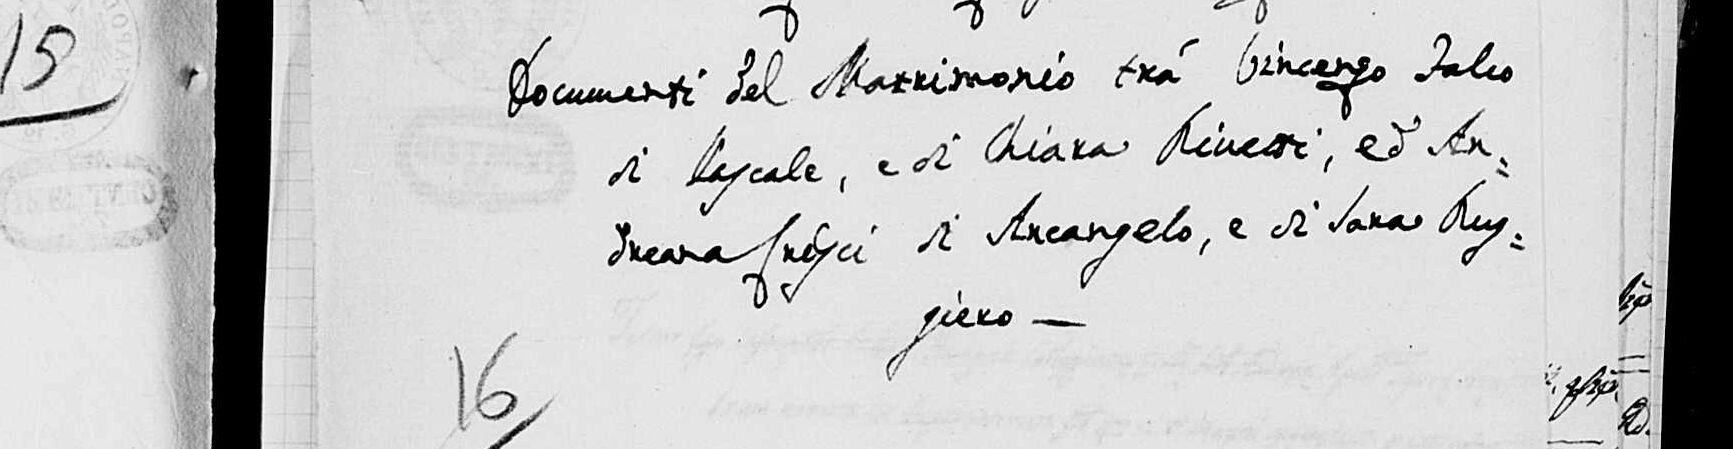 15
Documenti del Matrimonio trá Vincenzo Falco
di Pascale, e di Chiara Rivetti, ed An=
dreana frisci di Arcangelo, e di Sara Rug=
giero —
16